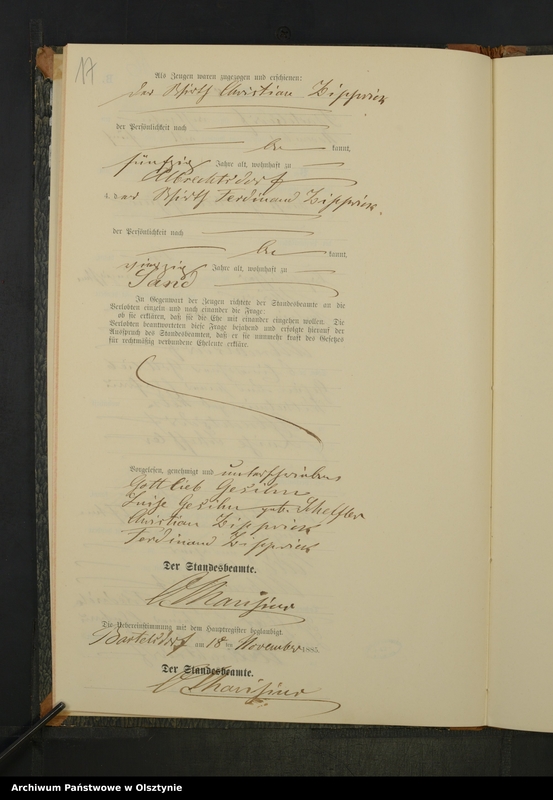 17
Als Zeugen waren zugezogen und erschienen:
der Wirth Christian Zipprick
der Persönlichkeit nach
be kannt,
fünfzig Jahre alt, wohnhaft zu
Albrechtsdorf
4. der Wirth Ferdinand Zipprick
der Persönlichkeit nach
be kannt,
vierzig Jahre alt, wohnhaft zu
Sand
In Gegenwart der Zeugen richtete der Standesbeamte an die
Verlobten einzeln und nach einander die Frage:
ob sie erklären, daß sie die Ehe mit einander eingehen wollen. Die
Verlobten beantworteten diese Frage bejahend und erfolgte hierauf der
Ausspruch des Standesbeamten, daß er sie nunmehr kraft des Gesetzes
für rechtmäßig verbundene Eheleute erkläre.
Vorgelesen, genehmigt und unterschrieben
Gottlieb
Luise geb.
Christian Zipprick
Ferdinand Zipprick
Der Standesbeamte.
Die Uebereinstimmung mit dem Hauptregister beglaubigt
Bartelsdorf am 18 ten November 1885.
Der Standesbeamte.
Archiwum Państwowe w Olsztynie